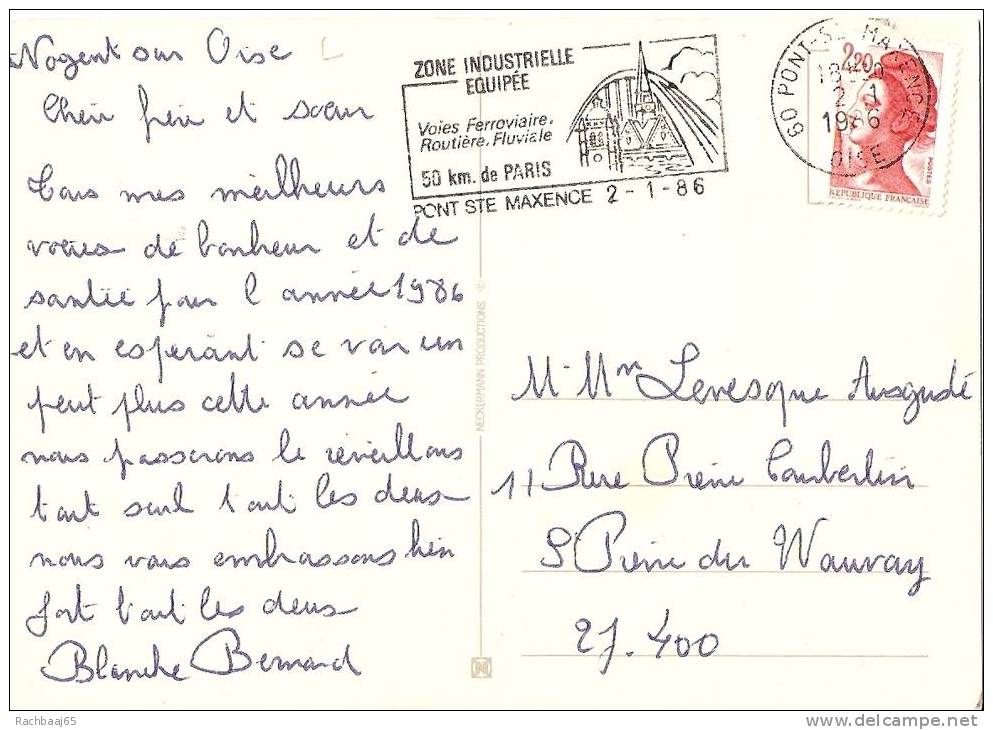 Nogent sur Oise
Cher frère et sœur
Tous mes meilheurs
voeies de bonheur et de
santée pour l'année 1986
et en esperant se voir un
peut plus cette année
nous passerons le réveillons
tout seul tout les deus
nous vous embrassons bien
fort tout les deus
Blanche Bernard
ZONE INDUSTRIELLE
EQUIPÉE
Voies Ferroviaire,
Routière, Fluviale
50 km. de PARIS
PONT STE MAXENCE 2-1-86
60 PONT-STE MAXENCE
18H
2-1
1986
OISE
2,20
POSTES
REPUBLIQUE FRANÇAISE
NECKERMANN PRODUCTIONS
M. Mr Levesque
11 Rue Pierre Coubertin
St Pierre du Vauvray
27.400
Rachbaaj65
www.delcampe.net